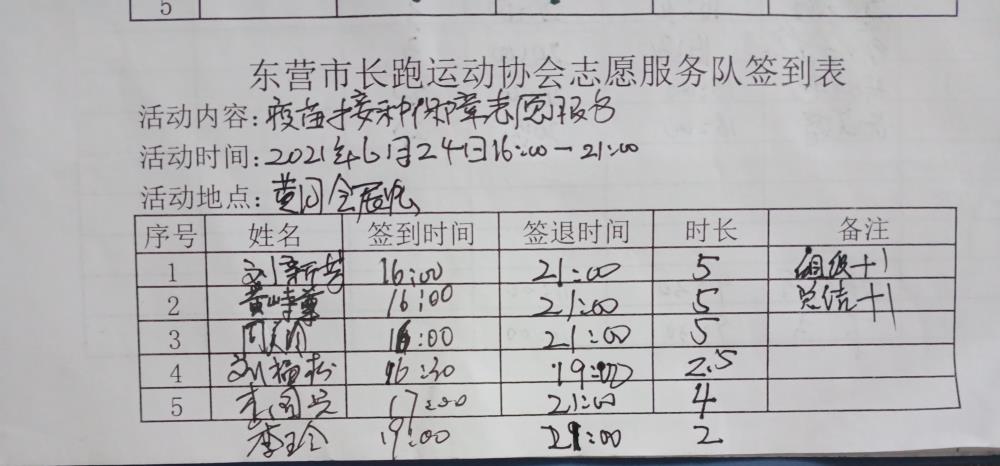 5
东营市长跑运动协会志愿服务队签到表
活动内容:疫苗接种保障志愿服务
活动时间:2021年6月24日16:00-21:00
活动地点:黄河会展
序号 姓名 签到时间 签退时间 时长 备注
1 刘新芳 16:00 21:00 5 组织+1
2 黄 16:00 21:00 5 总结+1
3 16:00 21:00 5
4 刘 16:30 19:00 2.5
5 17:00 21:00 4
李玉令 19:00 21:00 2